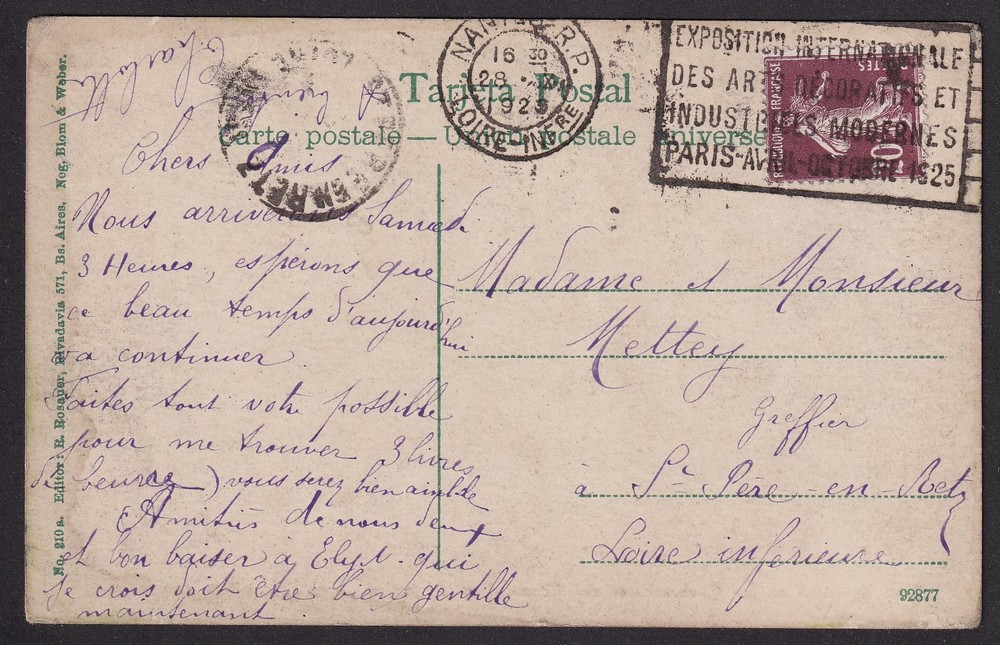 Tarjeta Postal
Carte postale — Union postale universelle
NANTES R.P.
16 30
28
1925
LOIRE-INFRE
EXPOSITION INTERNATIONALE
DES ARTS DÉCORATIFS ET
INDUSTRIELS MODERNES
PARIS-AVRIL-OCTOBRE 1925
POSTES
REPUBLIQUE FRANÇAISE
20
Charlotte
Chers Amis
Nous arriverons Samedi
3 Heures, espérons que
ce beau temps d'aujourd'hui
va continuer
Faites tout votre possible
pour me trouver 3 livres
de beurre) vous serez bien aimable
Amitiés de nous deux
et bon baiser à qui
je crois doit être bien gentille
maintenant.
Madame et Monsieur
Mettey
Greffier
à St Père-en-Retz
Loire inferieure
No. 210 a. Editor: R. Rosauer, Rivadavia 571, Bs. Aires, Neg. Blom & Weber.
92877